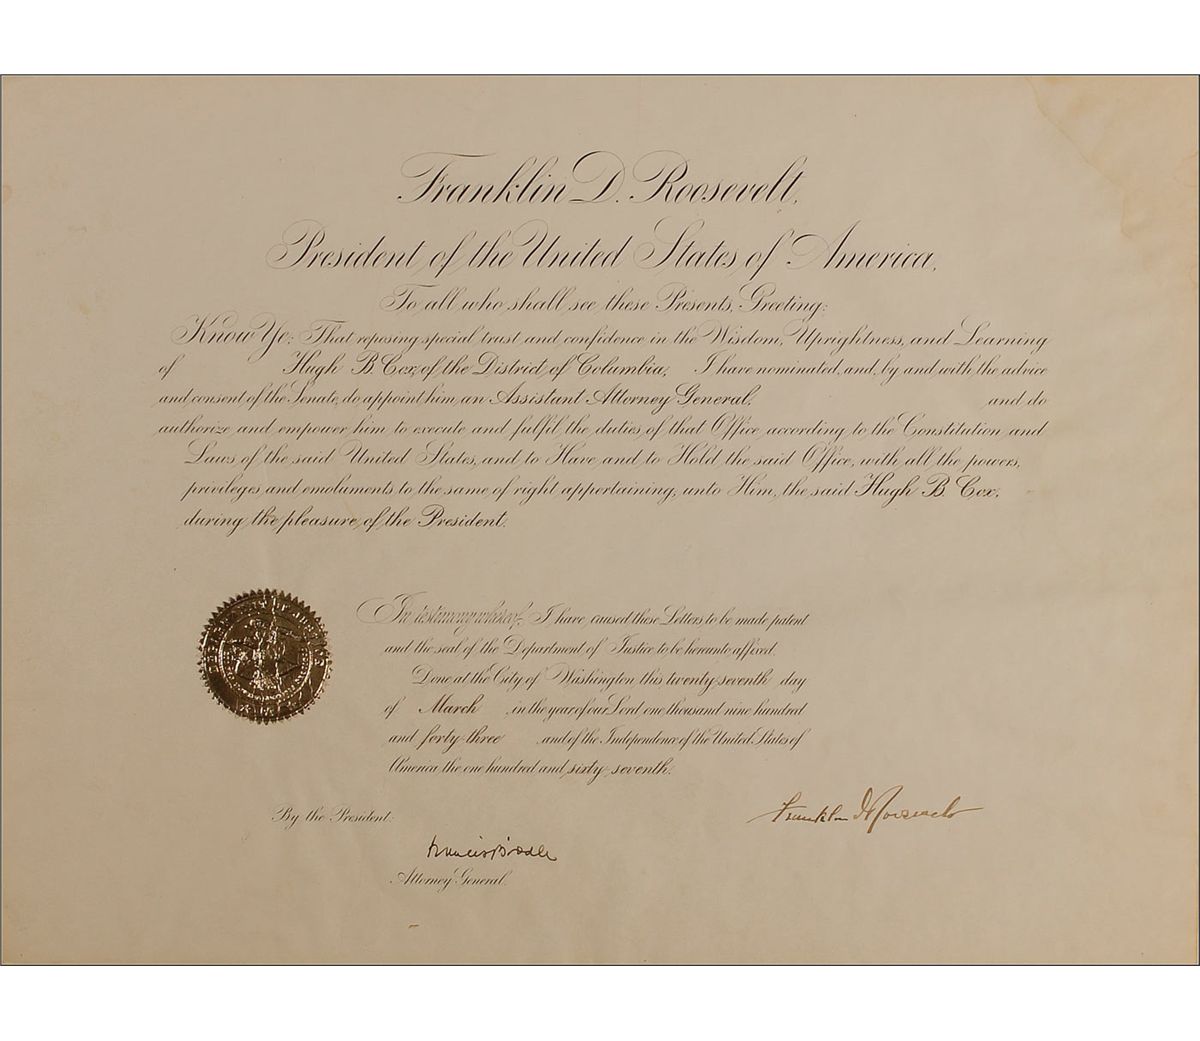 Franklin D. Roosevelt,
President of the United States of America,
To all who shall see these Presents, Greeting:
Know Ye; That reposing special trust and confidence in the Wisdom, Uprightness, and Learning
of Hugh B. Cox, of the District of Columbia, I have nominated, and, by and with the advice
and consent of the Senate, do appoint him, an Assistant Attorney General, and do
authorize and empower him to execute and fulfil the duties of that Office according to the Constitution and
Laws of the said United States, and to Have and to Hold the said Office, with all the powers,
privileges and emoluments to the same of right appertaining, unto Him, the said Hugh B. Cox,
during the pleasure of the President.
In testimony whereof, I have caused these Letters to be made patent
and the seal of the Department of Justice to be hereunto affixed.
Done at the City of Washington this twenty-seventh day
of March in the year of our Lord one thousand nine hundred
and forty-three and of the Independence of the United States of
America the one hundred and sixty-seventh.
Franklin D Roosevelt
By the President:
Francis Biddle
Attorney General.